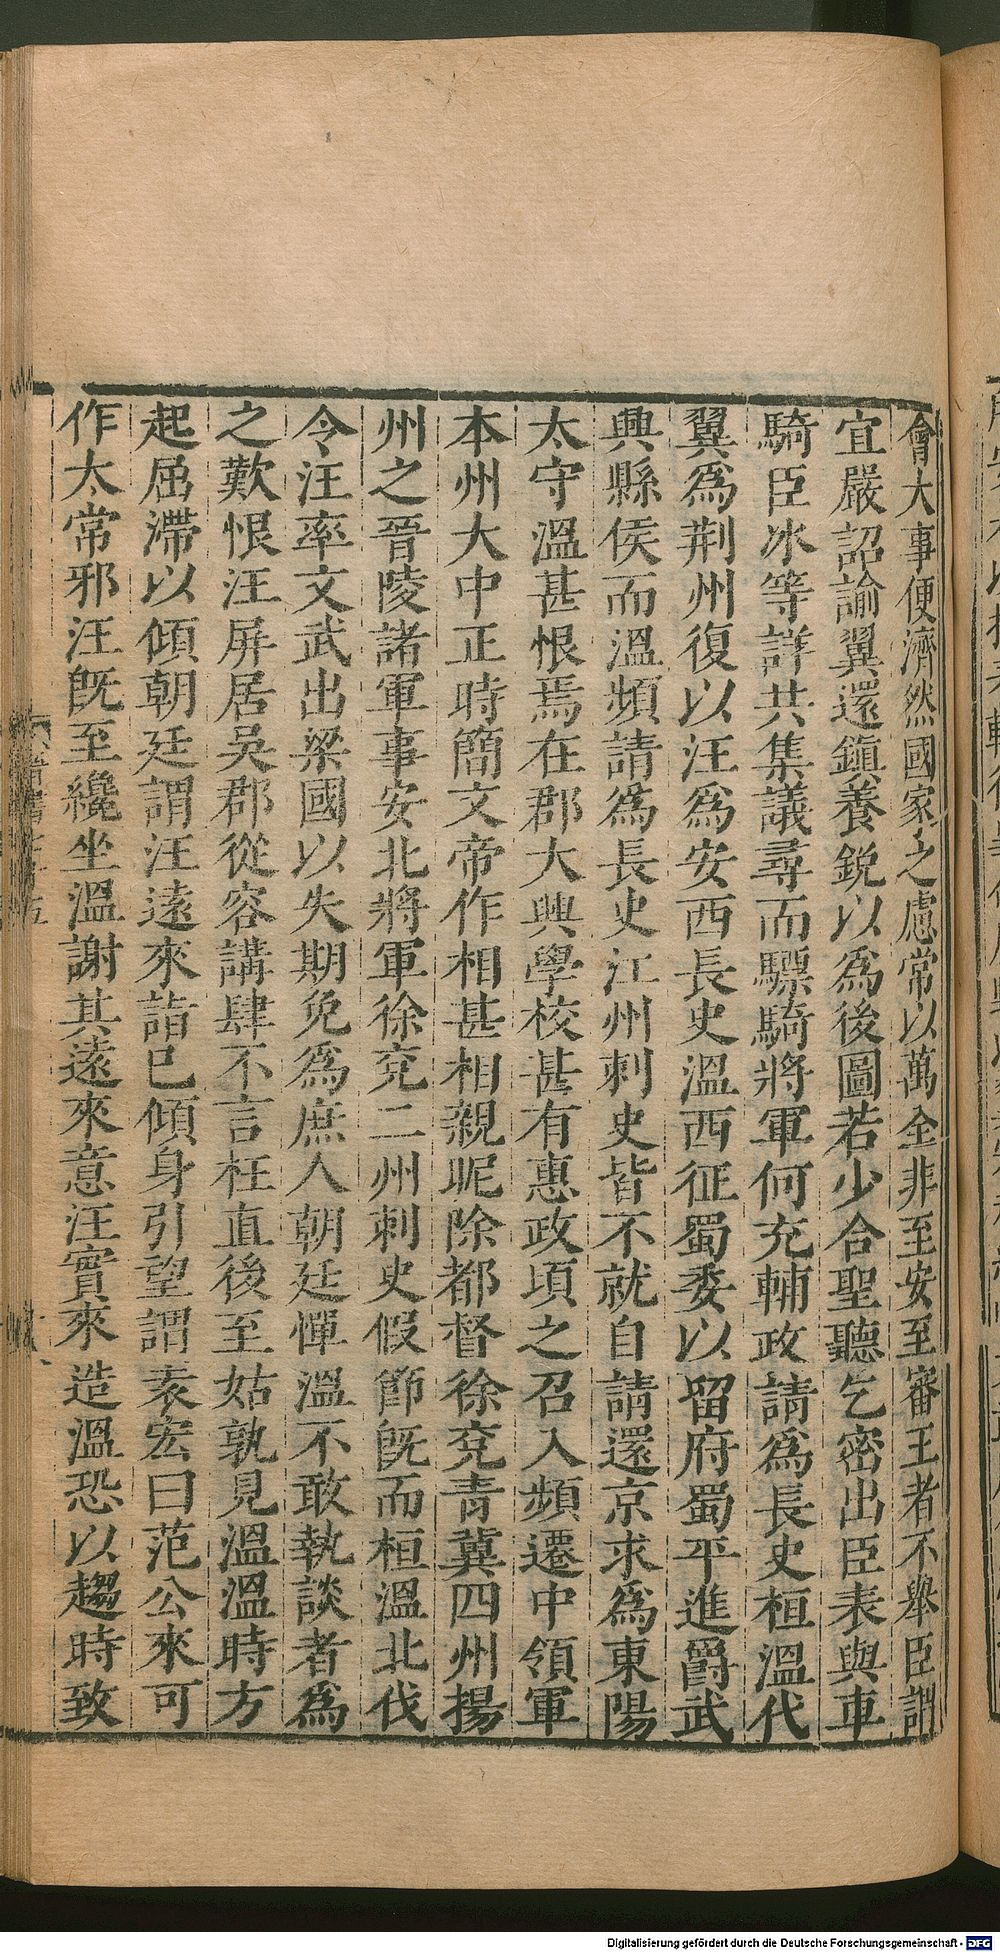 會大事便濟然國家之慮常以萬全非至安至審王者不舉臣謂
宜嚴詔諭翼還鎮養銳以爲後圖若少合聖聽乞密出臣表與車
騎臣冰等詳共集議尋而驃騎將軍何充輔政請爲長史桓溫代
翼爲荆州復以汪爲安西長史溫西征蜀委以留府蜀平進爵武
興縣侯而溫頻請爲長史江州刺史皆不就自請還京求爲東陽
太守溫甚恨焉在郡大興學校甚有惠政頃之召入頻遷中領軍
本州大中正時簡文帝作相甚相親昵除都督徐兗青冀四州揚
州之晉陵諸軍事安北將軍徐兗二州刺史假節旣而桓溫北伐
令汪率文武出梁國以失期免爲庶人朝廷憚溫不敢執談者爲
之歎恨汪屏居吳郡從容講肆不言枉直後至姑孰見溫溫時方
起屈滯以傾朝廷謂汪遠來詣已傾身引望謂袁宏曰范公來可
作太常邪汪旣至纔坐溫謝其遠來意汪實來造溫恐以趨時致
Digitalisierung gefördert durch die Deutsche Forschungsgemeinschaft - DFG